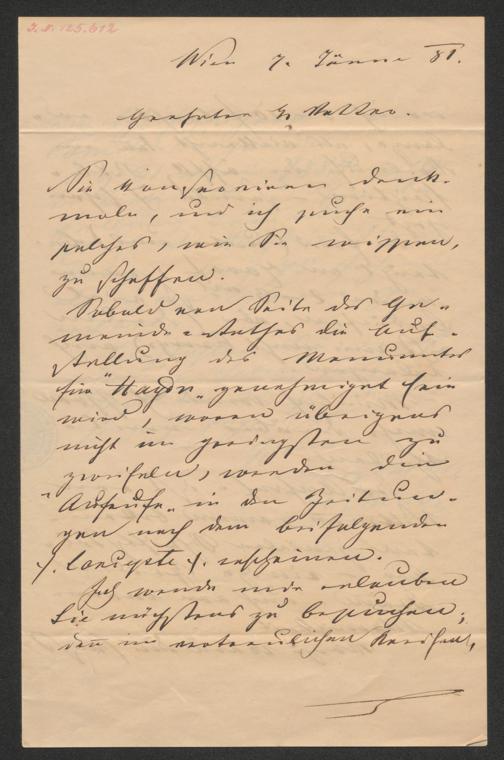 J.N. 125.612
Wien 7. Jänner 81.
Geehrter H Vetter.
Sie konservieren denk-
male, und ich suche ein
solches, wie Sie wissen,
zu schaffen.
Sobald von Seite des Ge-
meinde-Rathes die Auf-
stellung des Monumentes
für "Haydn" genehmiget sein
wird, woran übrigens
nicht im geringsten zu
zweifeln, werden die
"Aufrufe" in den Zeitun-
gen nach dem beifolgenden
./. Concepte ./. erscheinen.
Ich werde mir erlauben
Sie nächstens zu besuchen;
den im vertraulichen Kreise,